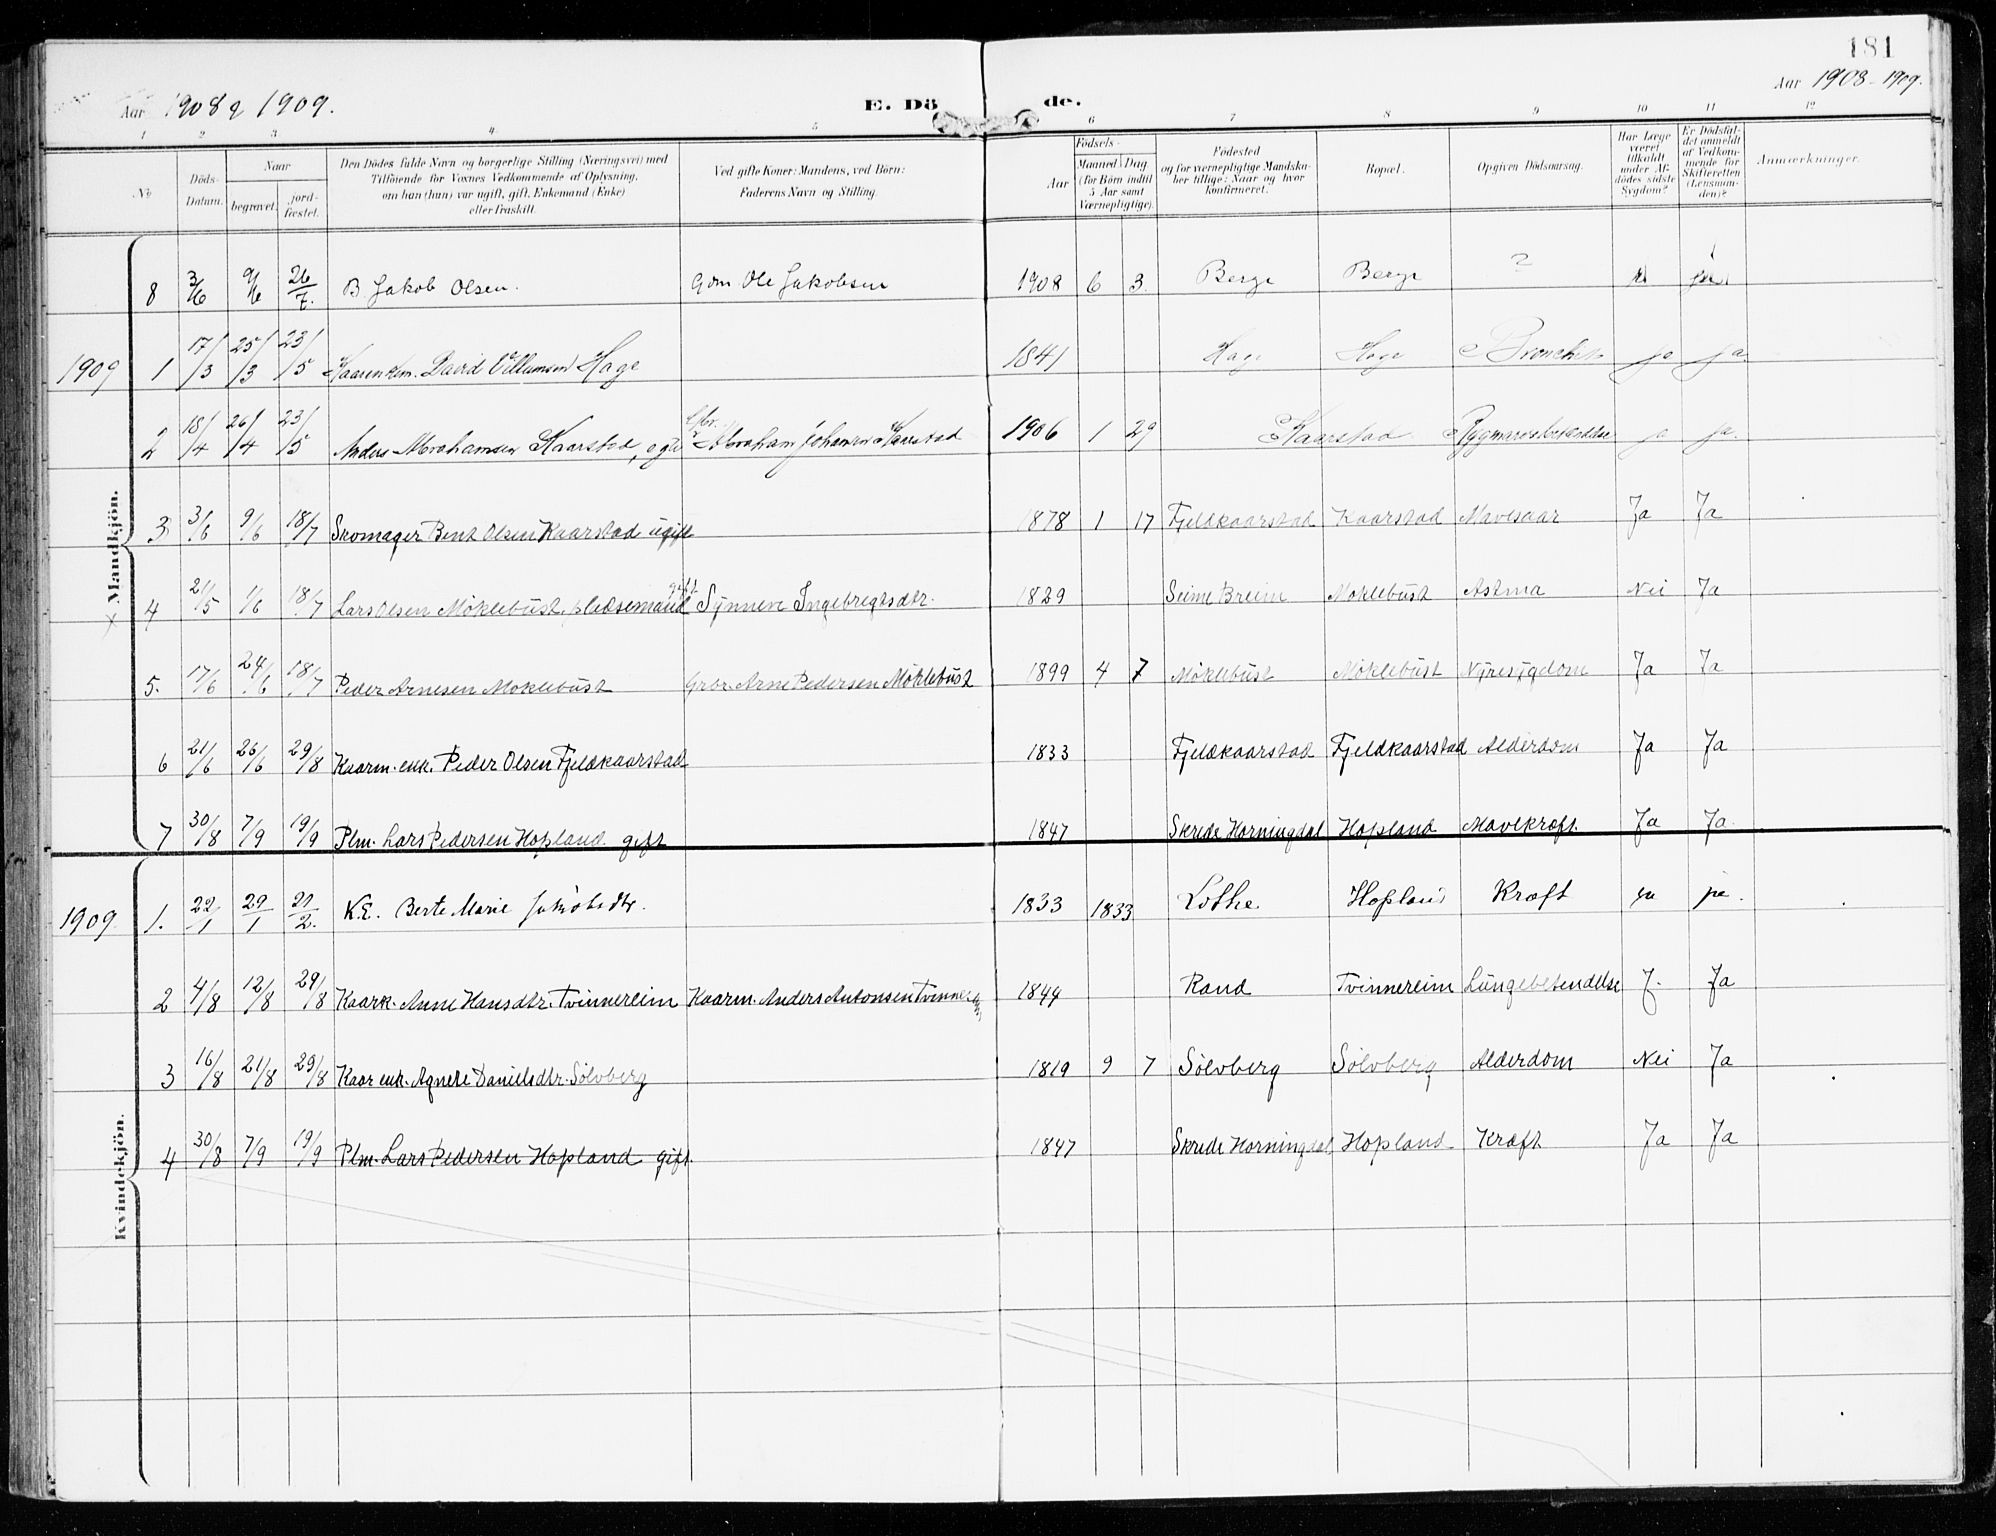 181
Aar 1908 & 1909.
E. Döde.
Aar 1908-1909.
1 2 3 4 5 6 7 8 9 10 11 12
No
Döds-Datum.
Naar
begravet.
jord-fæstet.
Den Dödes fulde Navn og borgerlige Stilling (Næringsvei) med
Tilföiende for Voxnes Vedkommende af Oplysning,
om han (hun) var ugift, gift, Enkemand (Enke)
eller fraskilt.
Ved gifte Koner: Mandens, ved Børn:
Faderens Navn og Stilling.
Födsels-
Aar
Maaned Dag
(for Børn indtil
5 Aar samt
Værnepligtige).
Födested
og for værnepligtige Mandska-
ber tillige: Naar og hvor
konfirmeret.
Bopæl.
Opgiven Dödsaarsag.
Har Læge
været
tilkaldt
under Af-
dödes sidste
Sygdom?
Er Dödsfal-
det anmeldt
af Vedkom-
mende for
Skifteretten
(Lensman-
den)?
Anmærkninger.
Mandkjön.
8 3/6 9/6 26/7. B Jakob Olsen. Gdm. Ole Jakobsen 1908 6 3. Berge Berge ?
1909 1 17/3 25/3 23/5 David Villumsen Hage 1841 Hage Hage Bronchit ja ja
2 18/4 26/4 23/5 Anders Abrahamsen Kaarstad, Abraham Johansen Kaarstad 1906 1 29 Kaarstad ja ja.
3 3/6 9/6 18/7 Skomager Bent Olsen Kaarstad ugift 1878 1 17 Fjeldkaarstad Kaarstad Mavesaar Ja Ja
4 21/5 1/6 18/7 Lars Olsen Möklebust, pladsemand gift Synneve Ingebregtsdtr. 1829 Seime Breim Möklebust Astma Nei Ja
5. 17/6 24/6 18/7 Peder Arnesen Möklebust Grbr. Arne Pedersen Möklebust 1899 4 7 Möklebust Möklebust Nyresygdom Ja Ja
6 21/6 26/6 29/8 Kaarm. enk. Peder Olsen Fjeldkaarstad 1833 Fjeldkaarstad Fjeldkaarstad Alderdom Ja Ja
7 30/8 7/9 19/9 Plm. Lars Pedersen Hopland. gift 1847 Skrede Horningdal Hopland Mavekræft. Ja Ja.
Kvindekjön.
1909 1. 22/1 29/1 21/2. K.E. Berte Marie Jakobsdtr. 1833 1833 Lothe Hopland Kræft ja ja.
2 4/8 12/8 29/8 Kaark. Anne Hansdtr. Tvinnereim Kaarm. Anders Antonsen Tvinnereim 1844 Rand Tvinnereim Lungebetendelse J. Ja
3 16/8 21/8 29/8 Kaar enk. Agnete Danielsdtr. Sölvberg 1819 9 7 Sölvberg Sölvberg Alderdom Nei Ja
4 30/8 7/9 19/9 Plm. Lars Pedersen Hopland gift. 1847 Skrede Horningdal Hopland Kræft Ja Ja